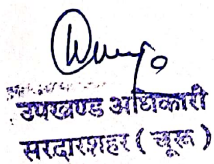 उपखण्ड अधिकारी
सरदारशहर ( चूरू )